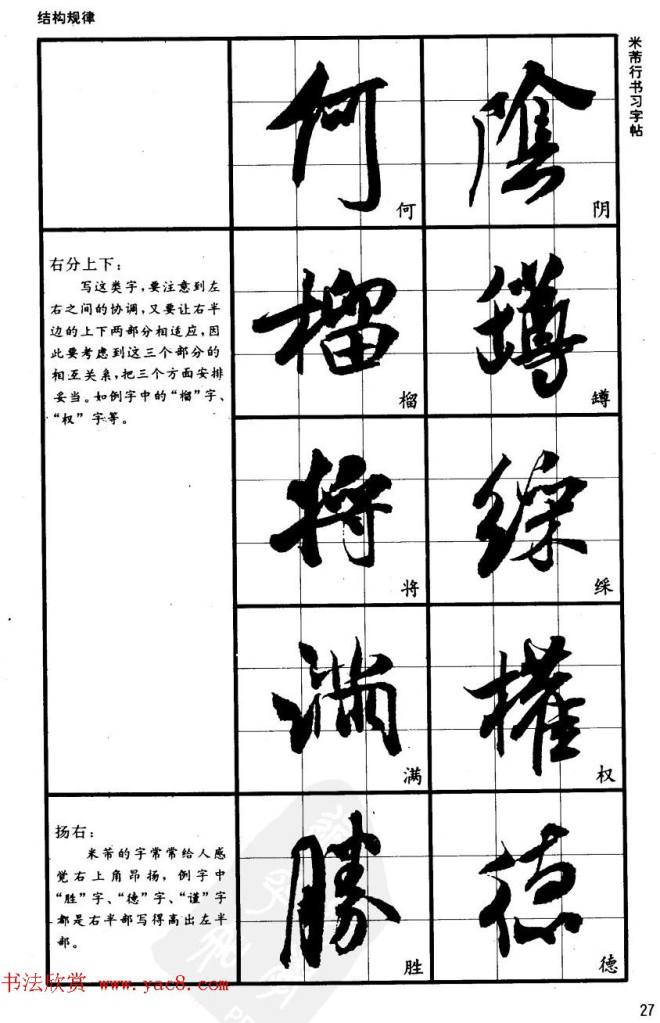 结构规律
米芾行书习字帖
何
何
陰
阴
右分上下：
写这类字，要注意到左
右之间的协调，又要让右半
边的上下两部分相适应，因
此要考虑到这三个部分的
相互关系，把三个方面安排
妥当。如例字中的“榴”字、
“权”字等。
榴
榴
罇
罇
将
将
綵
綵
满
满
權
权
扬右：
米芾的字常常给人感
觉右上角昂扬，例字中
“胜”字、“德”字、“谨”字
都是右半部写得高出左半
部。
勝
胜
德
德
书法欣赏 www.yac8.com
27